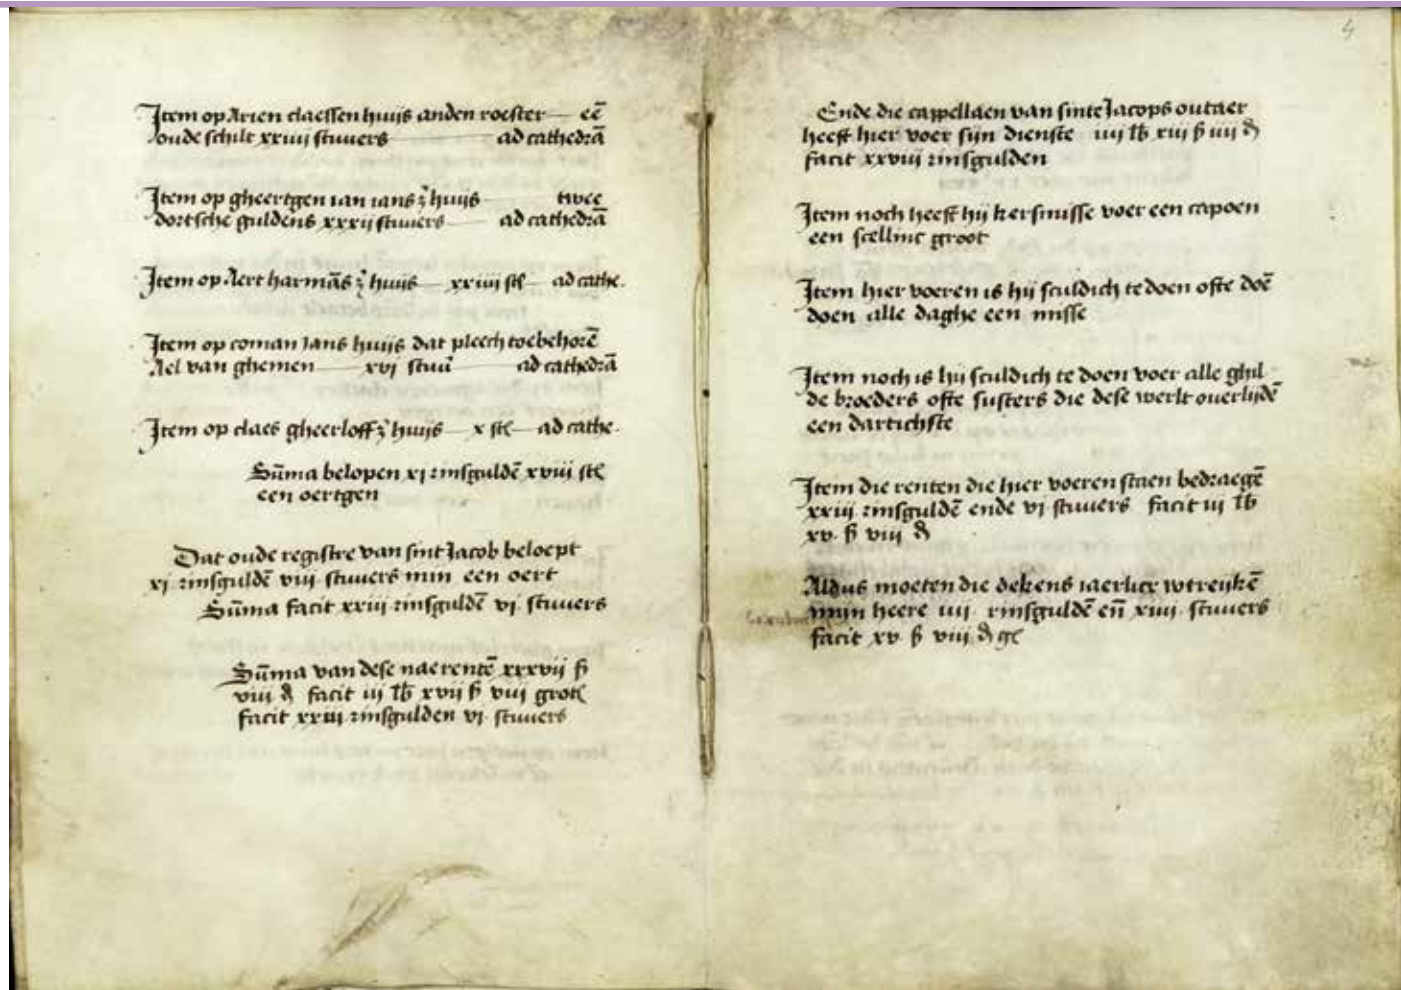 Item op Arien claessen huijs anden roester eē
oude schilt xxiiij stuvers ad cathedrā
Item op gheertgen ian ians ʒ huijs twee
dortsche guldens xxxij stuvers ad cathedrā
Item op Aert harmās ʒ huijs xxiiij st ad cathe.
Item op coman ians huijs dat pleech toebehorē
Ael van ghemen xvj stuū ad cathedrā
Item op claes gheerloff ʒ huijs x st ad cathe.
Sūma belopen xj rinsguldē xviij st
een oertgen
Dat oude registre van sint Jacob beloept
xj rinsguldē viij stuvers min een oert
Sūma facit xxiij rinsguldē vj stuvers
Sūma van dese naerentē xxxvij ß
viij d facit iij lb xvij ß viij grot
facit xxiij rinsgulden vj stuvers
4
Ende die cappellaen van sinte Jacops outaer
heeft hier voer sijn dienste iiij lb xiij ß iiij d
facit xxviij rinsgulden
Item noch heeft hij kersmisse voer een capoen
een scellinc groot
Item hier voeren is hij sculdich te doen ofte doē
doen alle daghe een misse
Item noch is hij sculdich te doen voer alle ghil
de broeders ofte susters die dese werlt overlijdē
een dartichste
Item die renten die hier voeren staen bedraegē
xxiij rinsguldē ende vj stuvers facit iij lb
xv. ß viij d
Aldus moeten die dekens iaerlicx wtreijkē
mijn heere iiij rinsguldē eñ xiiij stuvers
facit xv ß viij d g